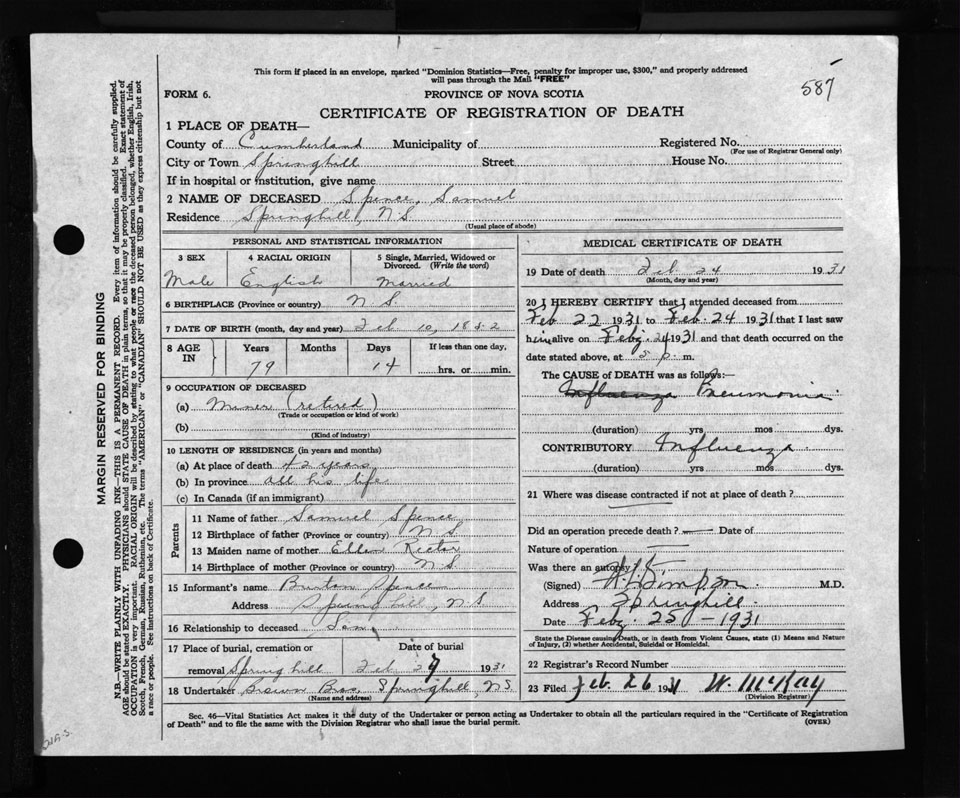 This form if placed in an envelope, marked "Dominion Statistics—Free, penalty for improper use, $300," and properly addressed
will pass through the Mail "FREE"
587
FORM 6.
PROVINCE OF NOVA SCOTIA
CERTIFICATE OF REGISTRATION OF DEATH
1 PLACE OF DEATH—
County of Cumberland Municipality of Registered No.
(For use of Registrar General only)
City or Town Springhill Street House No.
If in hospital or institution, give name
2 NAME OF DECEASED Spence, Samuel
Residence Springhill, N S
(Usual place of abode)
PERSONAL AND STATISTICAL INFORMATION
3 SEX 4 RACIAL ORIGIN 5 Single, Married, Widowed or Divorced. (Write the word)
Male English Married
6 BIRTHPLACE (Province or country) N S.
7 DATE OF BIRTH (month, day and year) Feb 10, 1852
8 AGE IN Years Months Days If less than one day,
79 14 hrs. or min.
9 OCCUPATION OF DECEASED
(a) Miner (retired)
(Trade or occupation or kind of work)
(b)
(Kind of industry)
10 LENGTH OF RESIDENCE (in years and months)
(a) At place of death 42 years
(b) In province all his life
(c) In Canada (if an immigrant)
Parents
11 Name of father Samuel Spence
12 Birthplace of father (Province or country) N S
13 Maiden name of mother Ellen Rector
14 Birthplace of mother (Province or country) N S.
15 Informant's name Burton Spence
Address Springhill, N S
16 Relationship to deceased Son
17 Place of burial, cremation or Date of burial
removal Springhill Feb 27 1931
18 Undertaker Brown Bros, Springhill N S
(Name and address)
MEDICAL CERTIFICATE OF DEATH
19 Date of death Feb 24 1931
(Month, day and year)
20 I HEREBY CERTIFY that I attended deceased from
Feb 22 1931 to Feb. 24 1931 that I last saw
him alive on Feby. 24 1931 and that death occurred on the
date stated above, at 5 p. m.
The CAUSE of DEATH was as follows:—
Influenza Pneumonia
(duration) yrs mos dys.
CONTRIBUTORY Influenza
(duration) yrs mos dys.
21 Where was disease contracted if not at place of death?
Did an operation precede death? — Date of
Nature of operation
Was there an autopsy
(Signed) Simpson M.D.
Address Springhill
Date Feby. 25 - 1931
State the Disease causing Death, or in death from Violent Causes, state (1) Means and Nature
of Injury, (2) whether Accidental, Suicidal or Homicidal.
22 Registrar's Record Number
23 Filed Feb. 26 1931 W. McKay
(Division Registrar)
Sec. 46—Vital Statistics Act makes it the duty of the Undertaker or person acting as Undertaker to obtain all the particulars required in the "Certificate of Registration
of Death" and to file the same with the Division Registrar who shall issue the burial permit. (OVER)
MARGIN RESERVED FOR BINDING
N.B.—WRITE PLAINLY WITH UNFADING INK—THIS IS A PERMANENT RECORD. Every item of information should be carefully supplied.
AGE should be stated EXACTLY. PHYSICIANS should STATE CAUSE OF DEATH in plain terms, so that it may be properly classified. Exact statement of
OCCUPATION is very important. RACIAL ORIGIN will be described by stating to what people or race the deceased person belonged, whether English, Irish,
Scotch, French, German, Russian, Ruthenian, etc. The terms "AMERICAN" or "CANADIAN" SHOULD NOT BE USED as they express citizenship but not
a race or people. See instructions on back of Certificate.